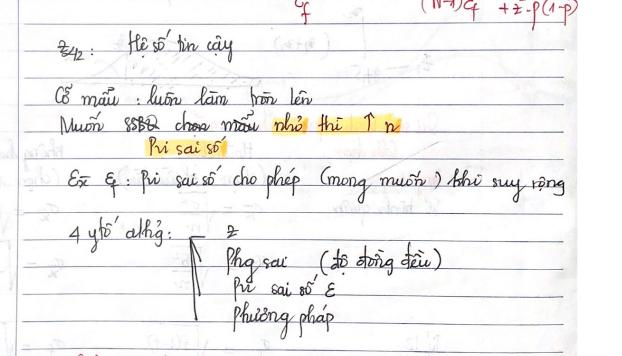 ε_f
(N-1)ε_f + z² . p(1-p)
z_α/2 : Hệ số tin cậy
Cỡ mẫu : luôn làm tròn lên
Muốn SSBQ chọn mẫu nhỏ thì ↑ n
Pvi sai số
ε_x̄ ε_f : Pvi sai số cho phép (mong muốn) khi suy rộng
4 ytố ahg :
z
Phg sai (độ đồng đều)
Pvi sai số ε
Phương pháp